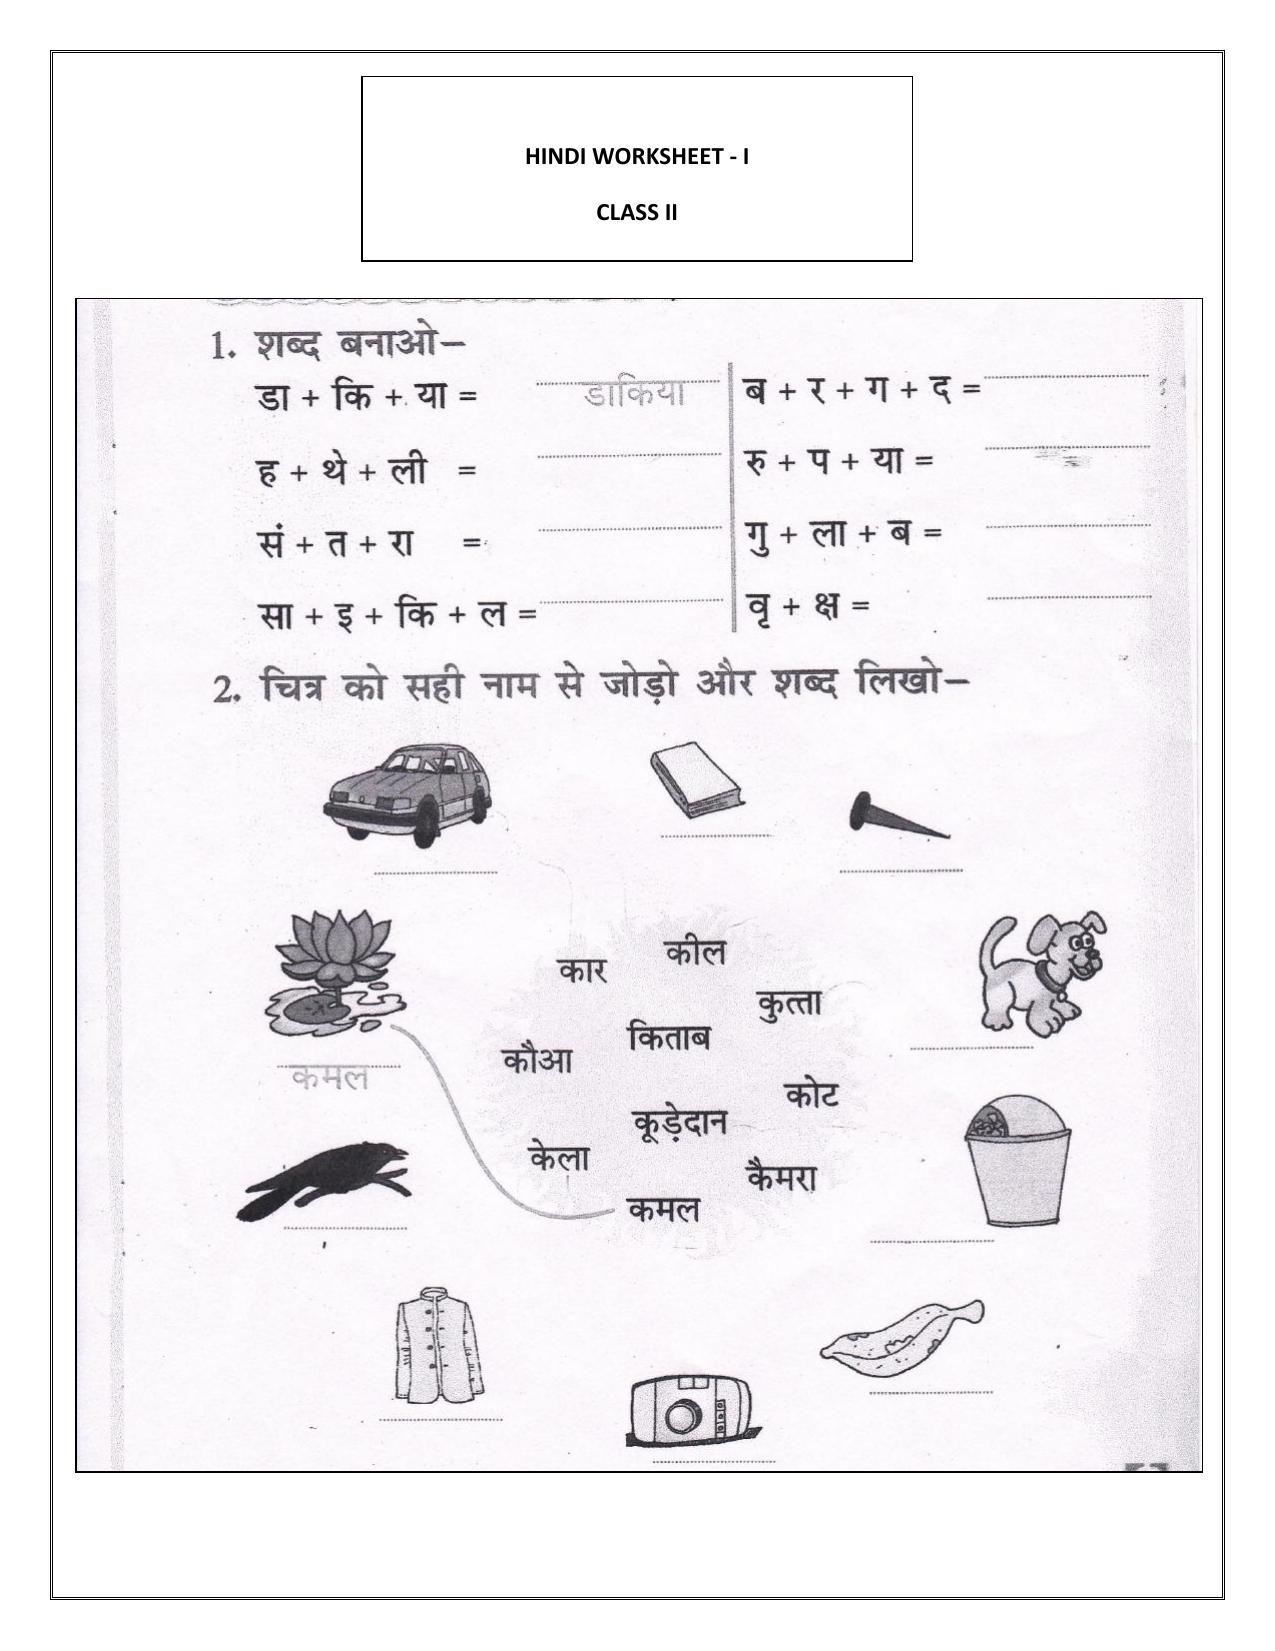 HINDI WORKSHEET - I
CLASS II
1. शब्द बनाओ–
डा + कि + या = डाकिया
ब + र + ग + द =
ह + थे + ली =
रु + प + या =
सं + त + रा =
गु + ला + ब =
सा + इ + कि + ल =
वृ + क्ष =
2. चित्र को सही नाम से जोड़ो और शब्द लिखो–
कार
कील
कुत्ता
किताब
कौआ
कमल
कोट
कूड़ेदान
केला
कैमरा
कमल